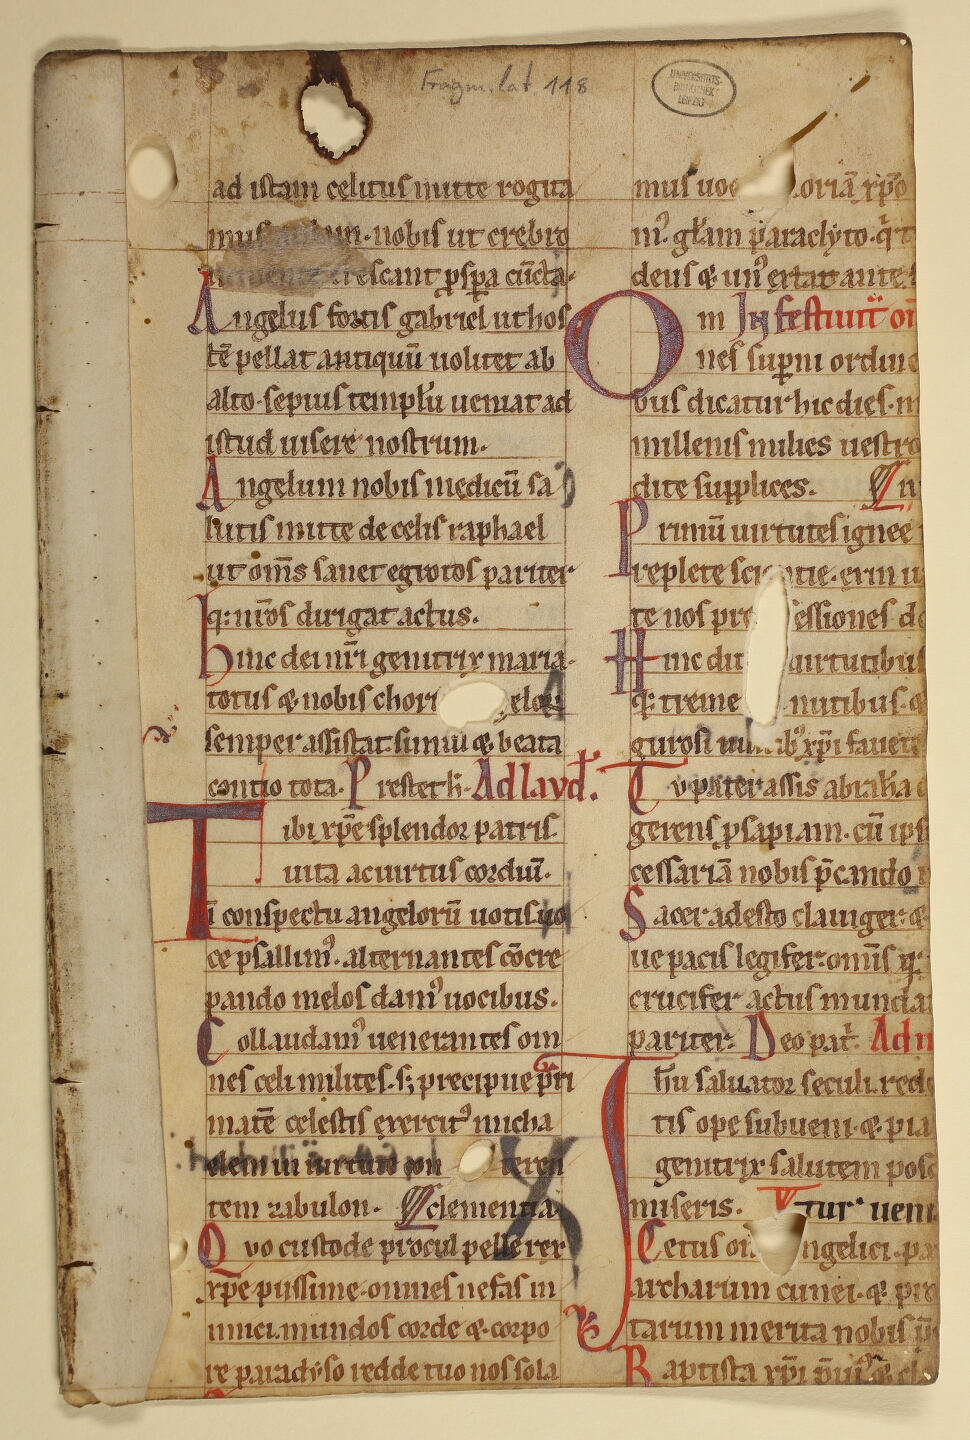 Fragm. lat. 118
UNIVERSITÄTS-
BIBLIOTHEK
LEIPZIG
ad istam celitus mitte rogita
mus nobis ut crebro
crescant ꝑspa cũcta.
Angelus fortis gabriel ut hos
tē pellat antiquū uolitet ab
alto. sepius templũ ueniat ad
istud uisere nostrum.
Angelum nobis medicū sa
lutis mitte de celis raphael
ut om̄s sanet egrotos pariter
q: nr̄os dirigat actus.
Hinc dei nr̄i genitrix maria.
totus & nobis chor
semper assistat. simul & beata
contio tota. Prestet h̄. Ad lavd.
Tibi xp̄e splendor patris
uita ac uirtus cordiū.
ī conspectu angelorū uotis uo
ce psallimꝰ. alternantes cōcre
pando melos damꝰ uocibus.
Collaudamꝰ uenerantes om
nes celi milites. s; precipue p̄ri
matē celestis exercitꝰ micha
elem in uirtute con teren
tem zabulon. clementia
Qvo custode procul pelle rex
xp̄e piissime. omnes nefas in
imici. mundos corde & corpo
re paradyso redde tuo nos sola
mus uoc oriā xp̄o
nꝰ. gl̄am paraclyto. q̄
deus & unꝰ extat ante
Om In festiuit̄ oī
nes sup̄ni ordine
bus dicatur hic dies.
millenis milies uestro
dite supplices. In
Primū uirtutes ignee
replete sci ntie.
te nos pre essiones
Hinc du uirtutibus
q: treme nutibus. &
gurosi xp̄i fauete
Tv pater assis abraha
gerens ꝓsapiam. cū ips
cessariā nobis p̄cando
Sacer adesto clauiger. &
ue pacis legifer. omīs q:
crucifer actus munda
pariter. Deo pat̄. Ad n
Ih̄u saluator seculi. rede
tis ope subueni. & pia
genitrix salutem posc
miseris. tur ueni
Cetus om ngelici. pa
archarum cunei. & pro
tarum merita nobis
Baptista xp̄i